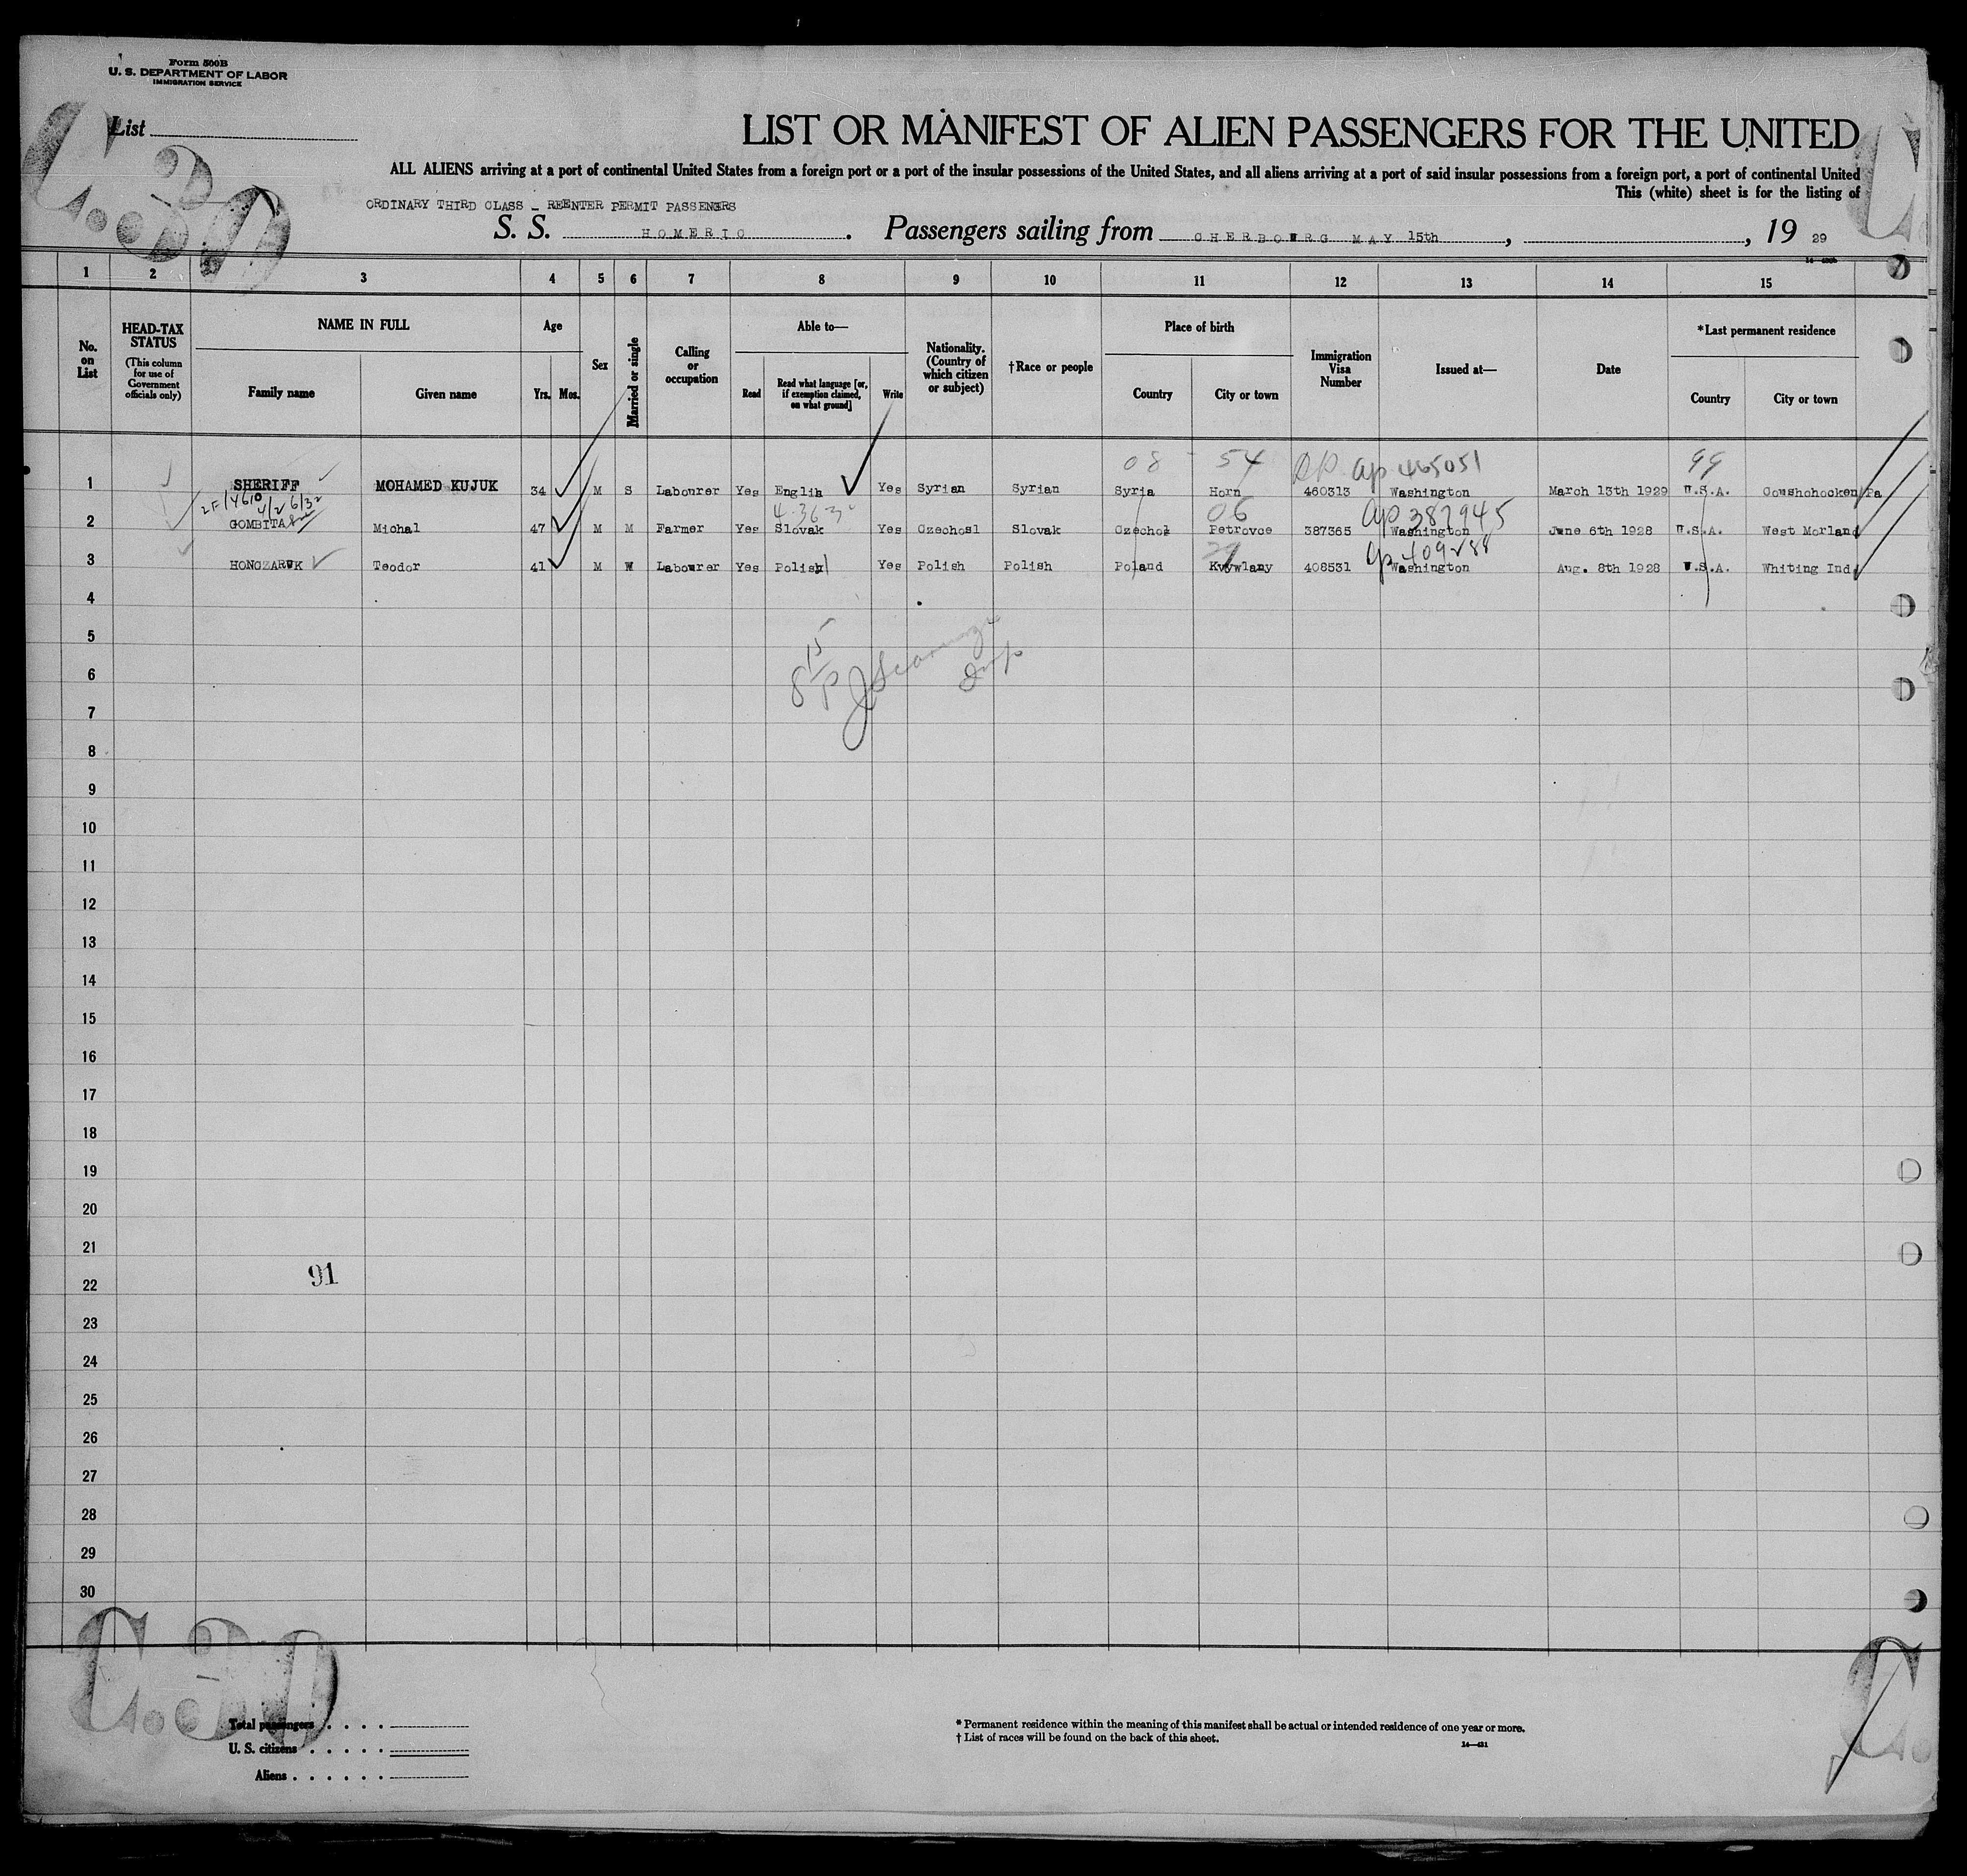 Form 500B
U. S. DEPARTMENT OF LABOR
IMMIGRATION SERVICE
List
LIST OR MANIFEST OF ALIEN PASSENGERS FOR THE UNITED
ALL ALIENS arriving at a port of continental United States from a foreign port or a port of the insular possessions of the United States, and all aliens arriving at a port of said insular possessions from a foreign port, a port of continental United
This (white) sheet is for the listing of
ORDINARY THIRD CLASS _ REENTER PERMIT PASSENGERS
S. S. HOMERIC. Passengers sailing from CHERBOURG MAY 15th, , 19 29
1 2 3 4 5 6 7 8 9 10 11 12 13 14 15
No. on List
HEAD-TAX STATUS
(This column for use of Government officials only)
NAME IN FULL
Family name Given name
Age
Yrs. Mos.
Sex
Married or single
Calling or occupation
Able to—
Read Read what language [or, if exemption claimed, on what ground] Write
Nationality. (Country of which citizen or subject)
†Race or people
Place of birth
Country City or town
Immigration Visa Number
Issued at—
Date
*Last permanent residence
Country City or town
08 54 ap 465051 99
1 SHERIFF MOHAMED KUJUK 34 M S Labourer Yes Englih Yes Syrian Syrian Syria Horn 460313 Washington March 13th 1929 U.S.A. Conshohocken Pa
4/26/32 4-363 06 ap 387945
2 GOMBITA Michal 47 M M Farmer Yes Slovak Yes Czechosl Slovak Czechol Petrovce 387365 Washington June 6th 1928 U.S.A. West Morland
ap 409288
3 HONCZARUK Teodor 41 M W Labourer Yes Polish Yes Polish Polish Poland Kvywlany 408531 Washington Aug. 8th 1928 U.S.A. Whiting Ind
4
5
6
7
8
9
10
11
12
13
14
15
16
17
18
19
20
21
22
91
23
24
25
26
27
28
29
30
8 15 P
Insp
Total passengers . . . .
U. S. citizens . . . . .
Aliens . . . . . .
* Permanent residence within the meaning of this manifest shall be actual or intended residence of one year or more.
† List of races will be found on the back of this sheet.
14—421